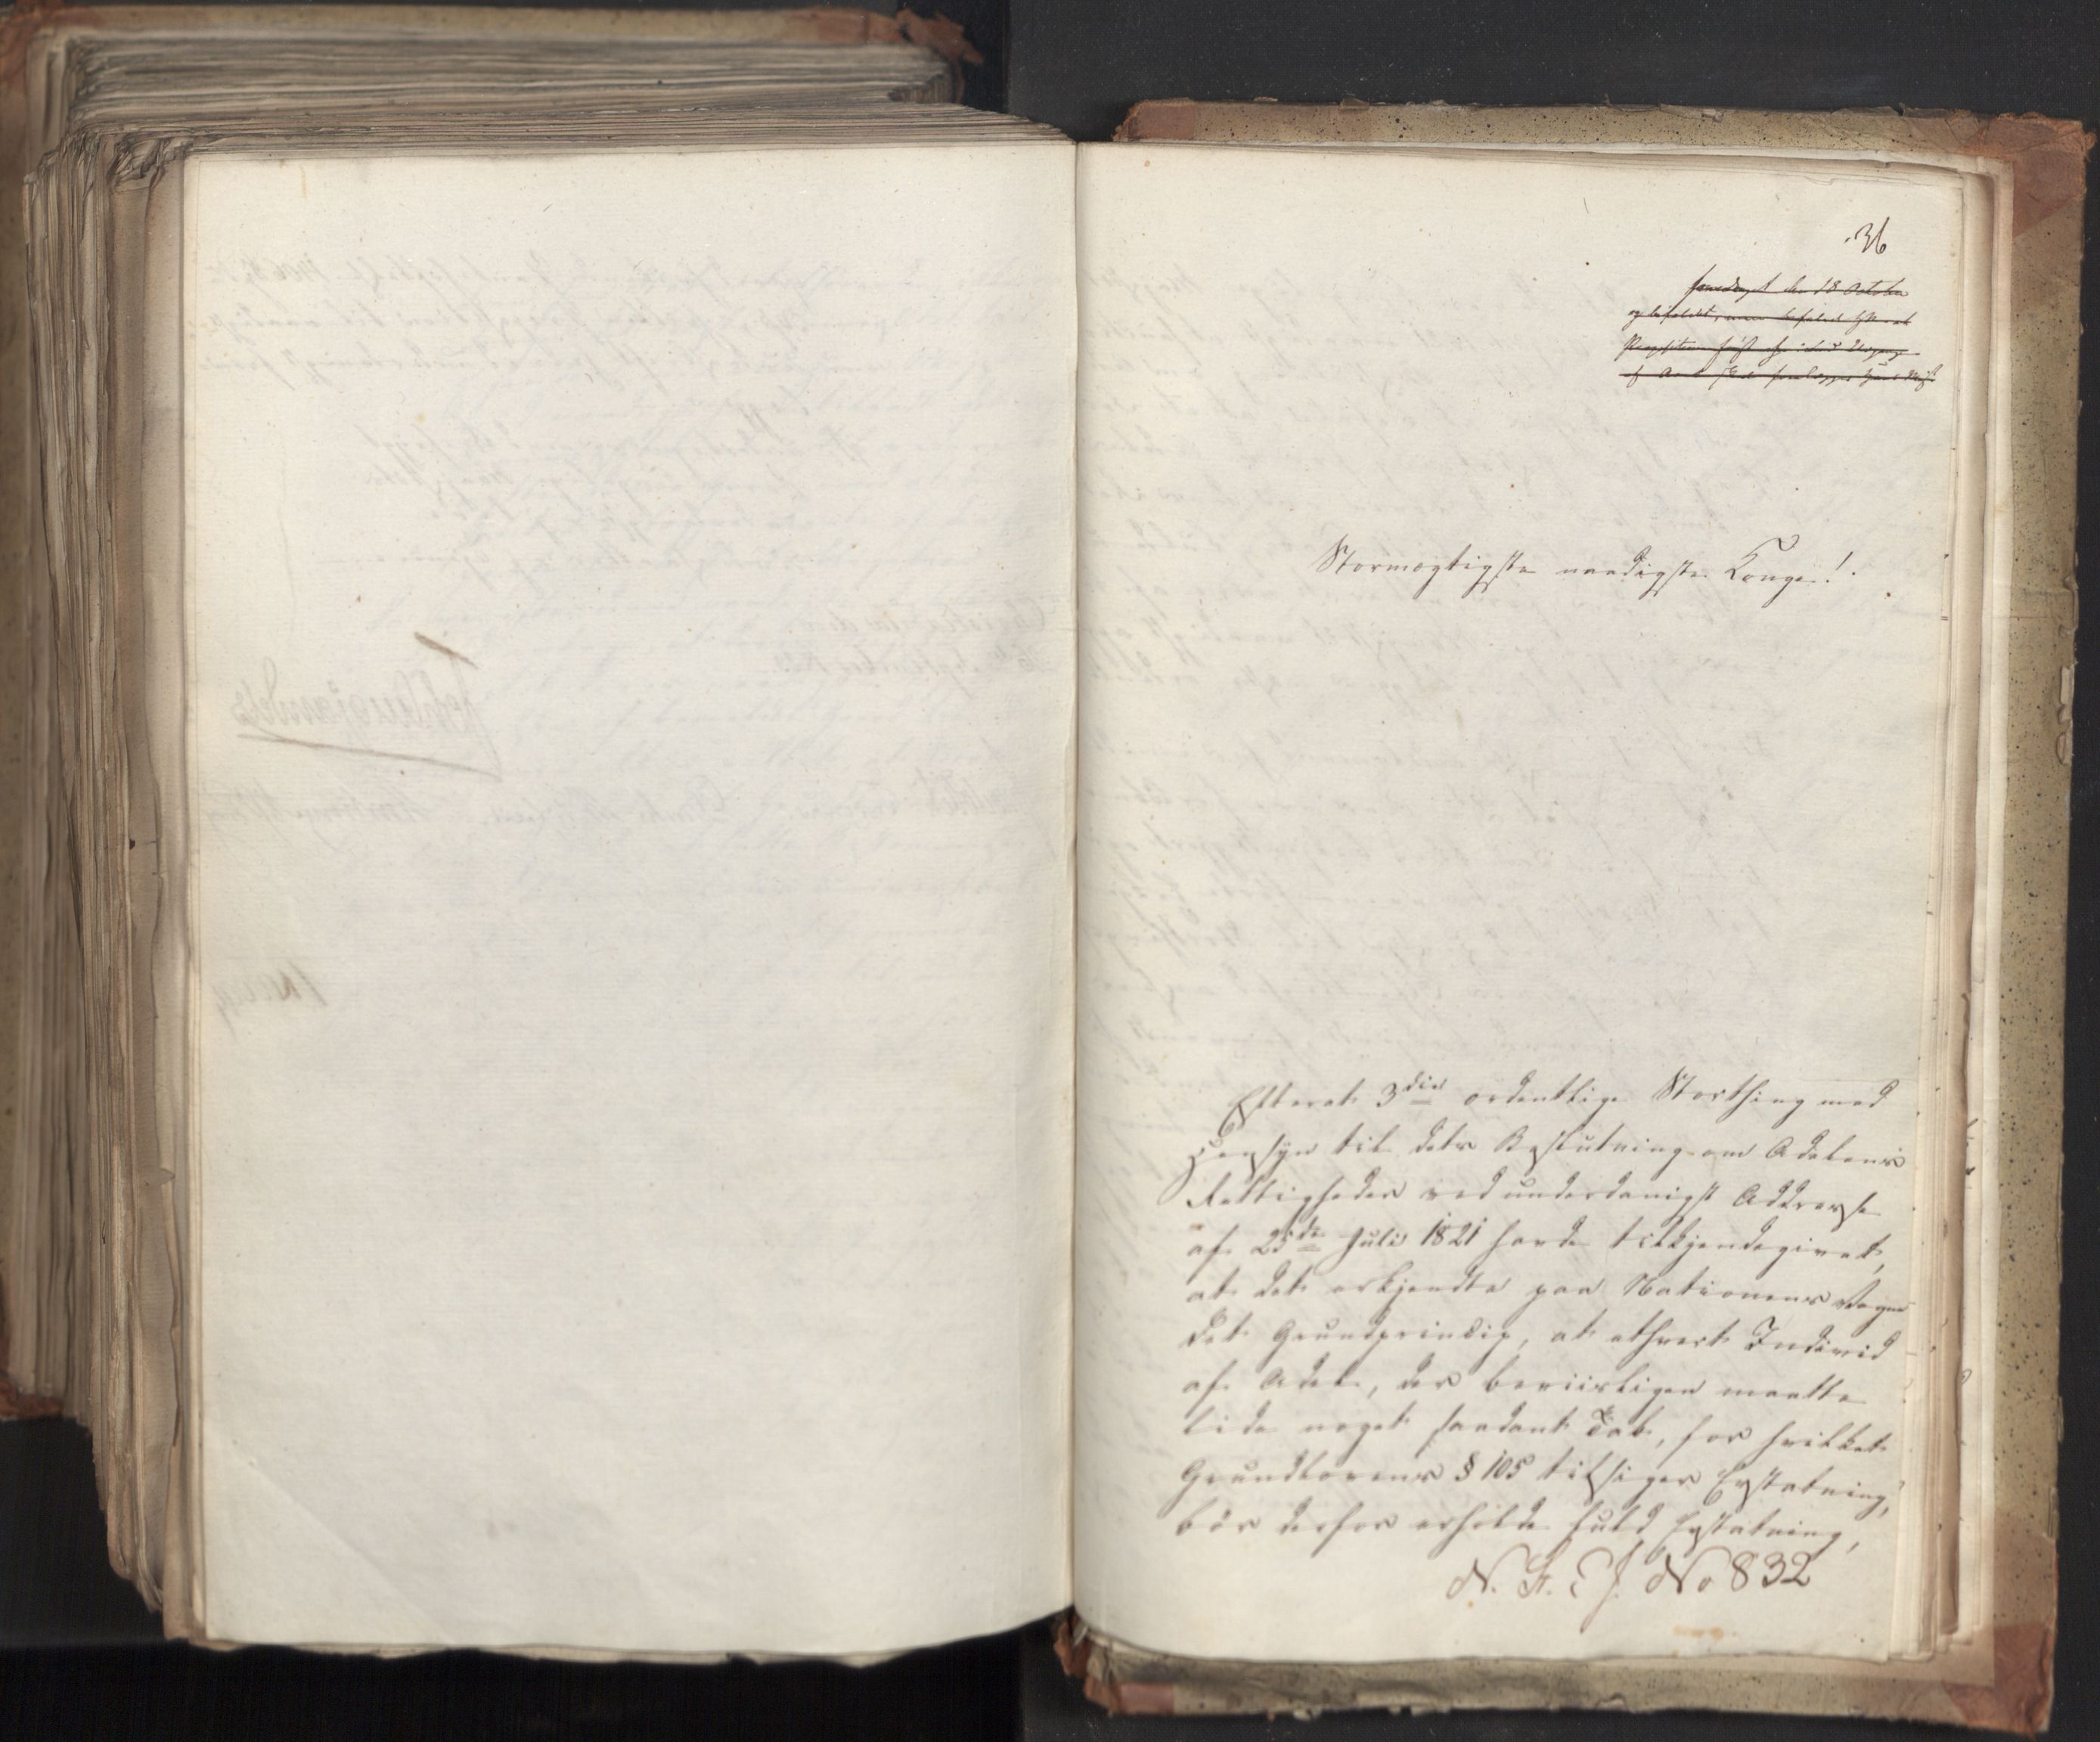 36
foredraget den 18 October
og bifaldet, men befalede HM at
Stormægtigste naadigste Konge!
Efterat 3die ordentlige Storthing med
Hensyn til dets Beslutning om Adelens
Rettigheder ved underdanigst Addresse
af 25de Juli 1821 havde tilkjendegivet,
at det erkjendte paa Nationens Vegne
det Grundprincip, at ethvert Individ
af Adel, der beviisligen maatte
lide noget saadant Tab, for hvilket
Grundlovens § 105 tilsiger Erstatning,
bör derfor erholde fuld Erstatning,
N. F. C J. No 832